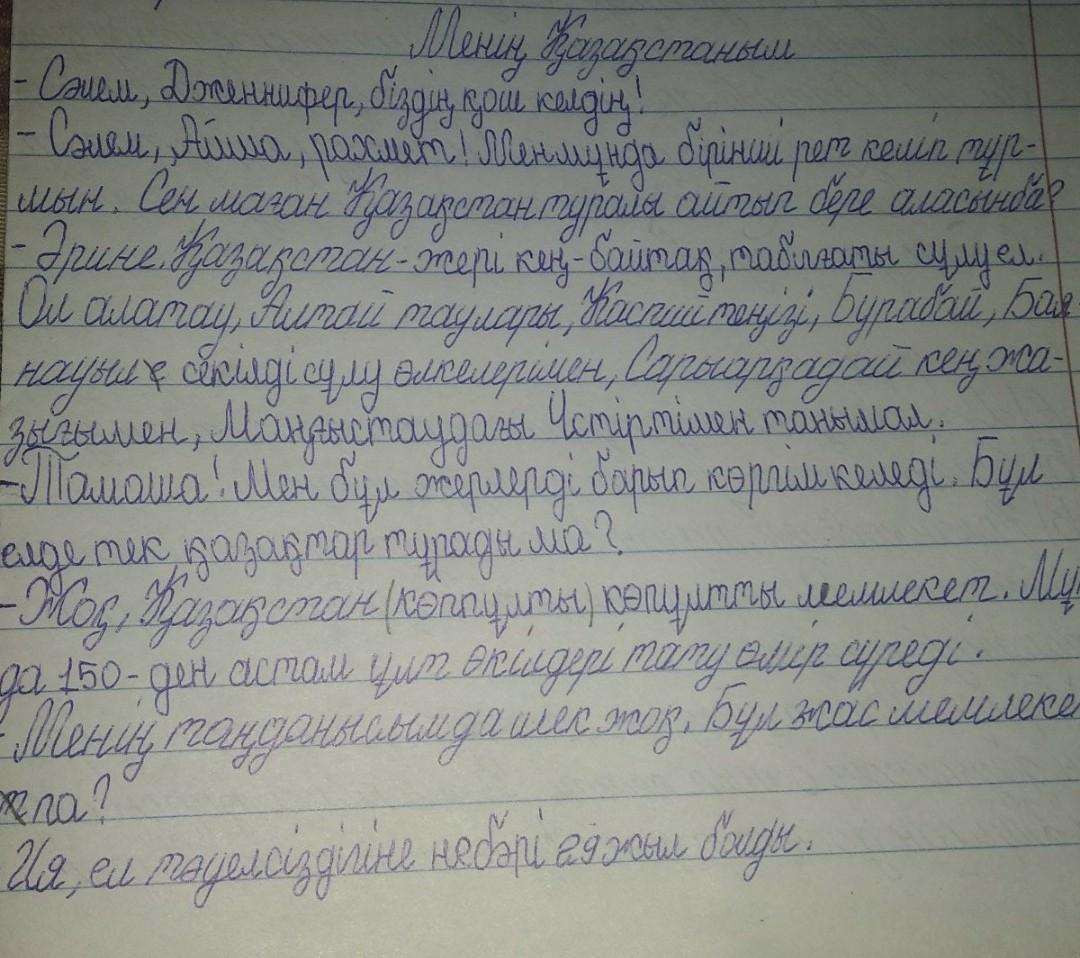 Менің Қазақстаным
- Сәлем, Дженнифер, біздің қош келдің!
- Сәлем, Айша, рахмет! Мен мұнда бірінші рет келіп тұр-
мын. Сен маған Қазақстан туралы айтып бере аласың ба?
- Әрине. Қазақстан - жері кең-байтақ, табиғаты сұлу ел.
Ол алатау, Алтай таулары, Каспий теңізі, Бурабай, Бая
науыл секілді сұлу өлкелерімен, Сарыарқадай кең жа-
зығымен, Маңғыстаудағы Үстіртімен танымал.
- Тамаша! Мен бұл жерлерді барып көргім келеді. Бұл
елде тек қазақтар тұрады ма?
- Жоқ, Қазақстан (көппұлты) көпұлтты мемлекет. Мұн
да 150-ден астам ұлт өкілдері тату өмір сүреді.
- Менің таңданысымда шек жоқ. Бұл жас мемлеке
т па?
Ия, ел тәуелсіздігіне небәрі жыл болды.